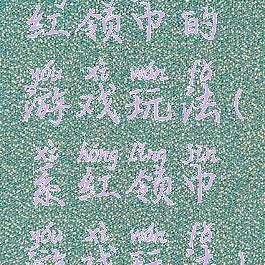 红领巾的
yóu xì wán fǎ
游戏玩法(
xì hóng lǐng jīn
系红领巾
yóu xì wán fǎ
游戏玩法(